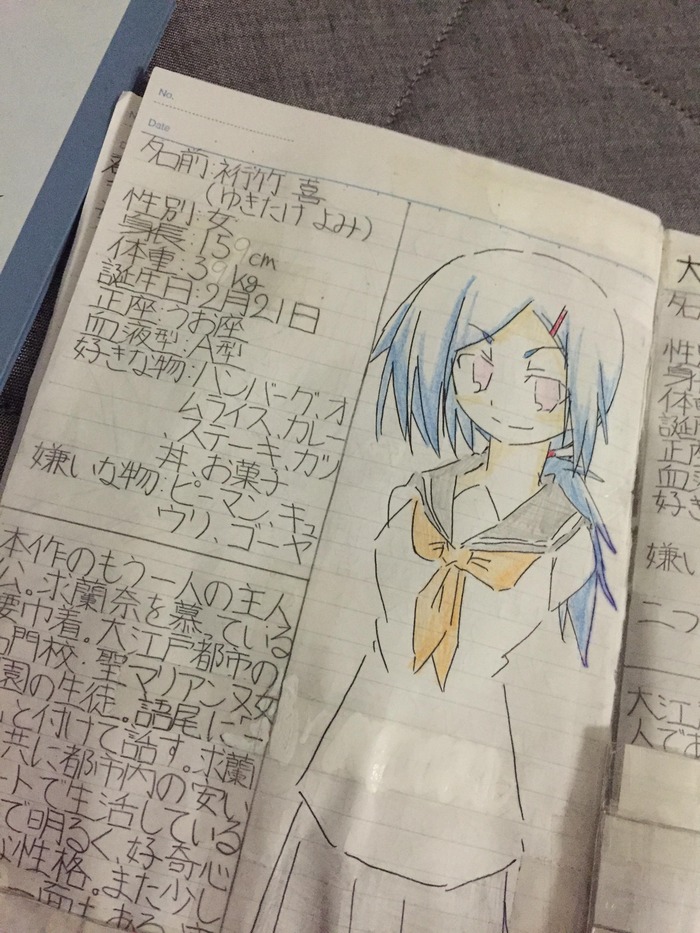 No.
Date
名前:裄竹 喜
(ゆきたけ よみ)
性別:女
身長:159cm
体重:39kg
誕生日:2月21日
正座:うお座
血液型:A型
好きな物:ハンバーグ、オ
ムライス、カレー
ステーキ、カツ
丼、お菓子
嫌いな物:ピーマン、キュ
ウリ、ゴーヤ
本作のもう一人の主人
公。求蘭奈を慕っている
腰巾着。大江戸都市の
名門校:聖マリアンヌ女
園の生徒。語尾に
と付けて話す。求蘭
共に都市内の安い
ートで生活している
で明るく、好奇心
な性格。また少し
一面もある。
大
名
性別
身
体
誕
正座
血液
好き
嫌い
二つ
大江
人であ